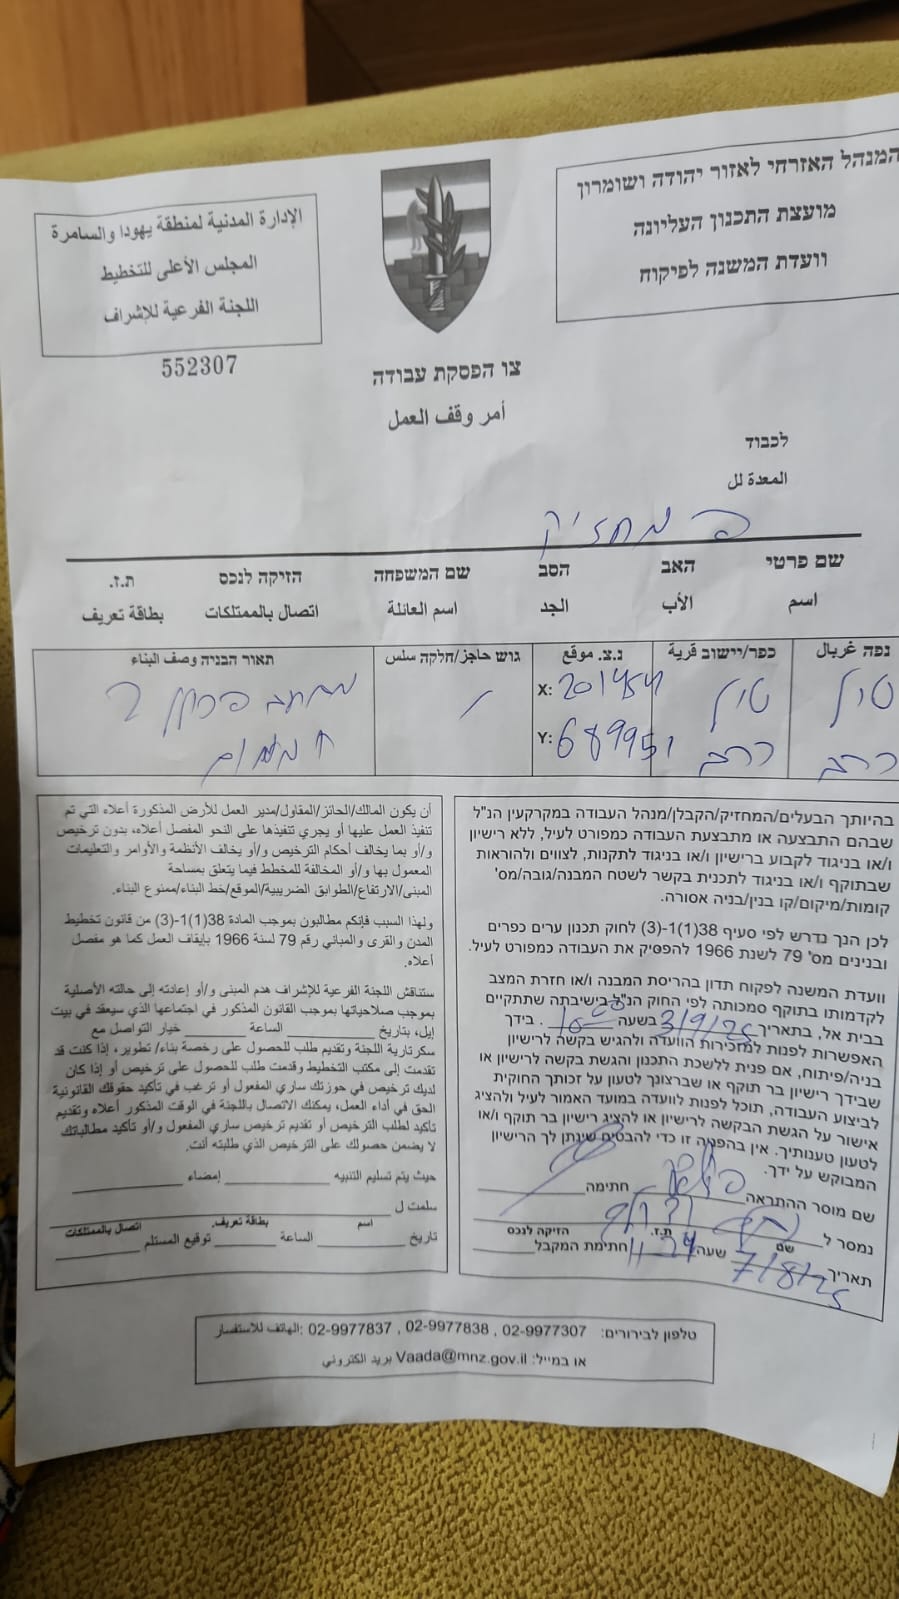 המנהל האזרחי לאזור יהודה ושומרון
מועצת התכנון העליונה
וועדת המשנה לפיקוח
الإدارة المدنية لمنطقة يهودا والسامرة
المجلس الأعلى للتخطيط
اللجنة الفرعية للإشراف
552307
צו הפסקת עבודה
أمر وقف العمل
לכבוד
المعدة لل
המחזיק
שם פרטי האב הסב שם המשפחה הזיקה לנכס ת.ז.
اسم الأب الجد اسم العائلة اتصال بالممتلكات بطاقة تعريف
נפה غربال כפר/יישוב قرية נ.צ. מוקע גוש حاجز/חלקה سلس תאור הבניה وصف البناء
X: 201454
Y: 689951
בהיותך הבעלים/המחזיק/הקבלן/מנהל העבודה במקרקעין הנ"ל
שבהם התבצעה או מתבצעת העבודה כמפורט לעיל, ללא רישיון
ו/או בניגוד לקבוע ברישיון ו/או בניגוד לתקנות, לצווים ולהוראות
שבתוקף ו/או בניגוד לתכנית בקשר לשטח המבנה/גובה/מס'
קומות/מיקום/קו בנין/בניה אסורה.
לכן הנך נדרש לפי סעיף 38(1)1-(3) לחוק תכנון ערים כפרים
ובנינים מס' 79 לשנת 1966 להפסיק את העבודה כמפורט לעיל.
וועדת המשנה לפקוח תדון בהריסת המבנה ו/או חזרת המצב
לקדמותו בתוקף סמכותה לפי החוק הנ"ל בישיבתה שתתקיים
בבית אל, בתאריך 3/9/25 בשעה 10:00. בידך
האפשרות לפנות למזכירות הוועדה ולהגיש בקשה לרישיון
בניה/פיתוח, אם פנית ללשכת התכנון והגשת בקשה לרישיון או
שבידך רישיון בר תוקף או שברצונך לטעון על זכותך החוקית
לביצוע העבודה, תוכל לפנות לוועדה במועד האמור לעיל ולהציג
אישור על הגשת הבקשה לרישיון או להציג רישיון בר תוקף ו/או
לטעון טענותיך. אין בהפניה זו כדי להבטיח שינתן לך הרישיון
המבוקש על ידך.
שם מוסר ההתראה חתימה
נמסר ל
שם ת.ז. הזיקה לנכס
תאריך 7/8/25 שעה 11:24 חתימת המקבל
أن يكون المالك/الحائز/المقاول/مدير العمل للأرض المذكورة أعلاه التي تم
تنفيذ العمل عليها أو يجري تنفيذها على النحو المفصل أعلاه، بدون ترخيص
و/أو بما يخالف أحكام الترخيص و/أو يخالف الأنظمة والأوامر والتعليمات
المعمول بها و/أو المخالفة للمخطط فيما يتعلق بمساحة
المبنى/الارتفاع/الطوابق الضريبية/الموقع/خط البناء/ممنوع البناء.
ولهذا السبب فإنكم مطالبون بموجب المادة 38(1)1-(3) من قانون تخطيط
المدن والقرى والمباني رقم 79 لسنة 1966 بإيقاف العمل كما هو مفصل
أعلاه.
ستناقش اللجنة الفرعية للإشراف هدم المبنى و/أو إعادته إلى حالته الأصلية
بموجب صلاحياتها بموجب القانون المذكور في اجتماعها الذي سيعقد في بيت
إيل، بتاريخ الساعة خيار التواصل مع
سكرتارية اللجنة وتقديم طلب للحصول على رخصة بناء/ تطوير، إذا كنت قد
تقدمت إلى مكتب التخطيط وقدمت طلب للحصول على ترخيص أو إذا كان
لديك ترخيص في حوزتك ساري المفعول أو ترغب في تأكيد حقوقك القانونية
الحق في أداء العمل، يمكنك الاتصال باللجنة في الوقت المذكور أعلاه وتقديم
تأكيد لطلب الترخيص أو تقديم ترخيص ساري المفعول و/أو تأكيد مطالباتك
لا يضمن حصولك على الترخيص الذي طلبته أنت.
حيث يتم تسليم التنبيه إمضاء
سلمت ل
اسم بطاقة تعريف. اتصال بالممتلكات
تاريخ الساعة توقيع المستلم
טלפון לבירורים: 02-9977307 , 02-9977838 , 02-9977837 :الهاتف للاستفسار
או במייל: Vaada@mnz.gov.il بريد الكتروني